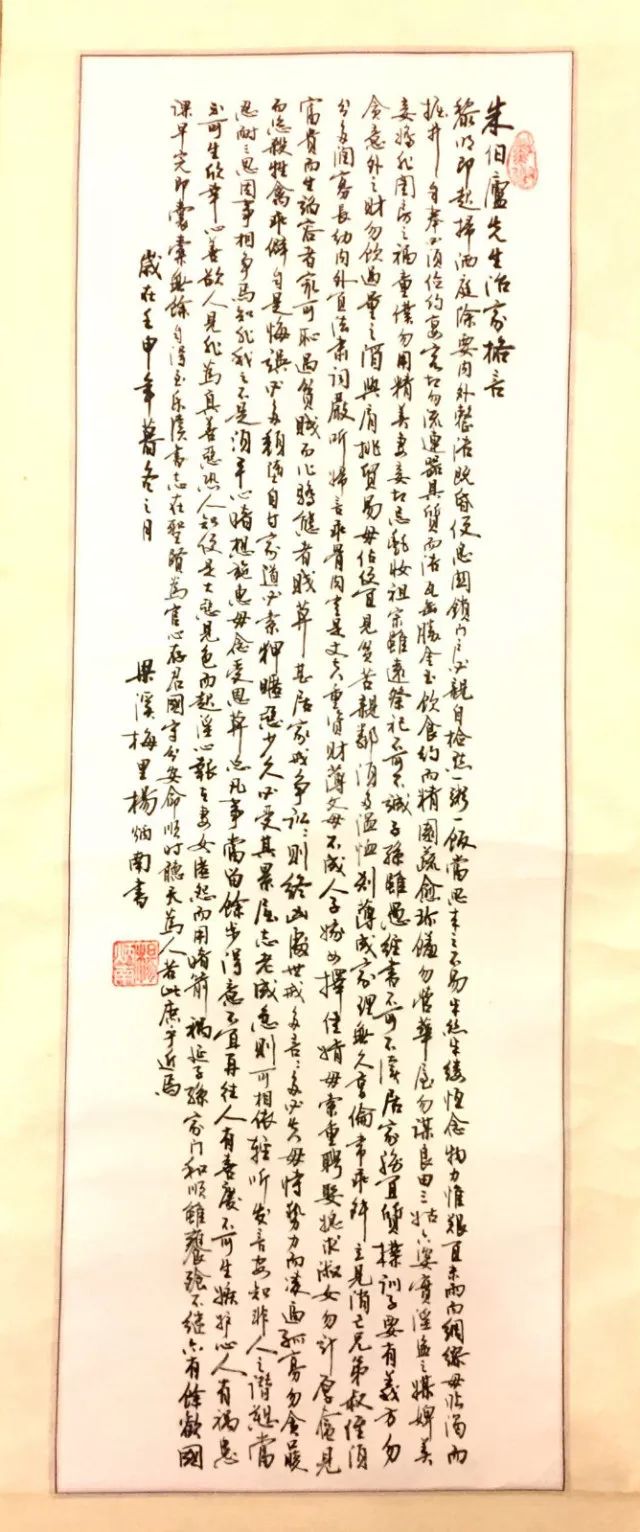 朱伯廬先生治家格言
黎明即起掃洒庭除要內外整洁既昏便息関鎖门户必親自檢點一粥一飯當思来之不易半絲半縷恒念物力惟艱宜未雨而綢繆毋臨渴而
掘井自奉必須俭約宴客切勿流連器具質而洁瓦缶勝金玉飲食約而精園蔬愈珍饈勿营華屋勿謀良田三姑六婆實淫盗之媒婢美
妾嬌非閨房之福童僕勿用精美妻妾切忌艷妆祖宗雖遠祭祀不可不誠子孫雖愚经書不可不读居家務宜質樸训子要有義方勿
貪意外之財勿飲過量之酒與肩挑貿易毋佔便宜見貧苦親鄰須多温恤刻薄成家理無久享倫常乖舛立見消亡兄弟叔侄須
分多润寡長幼內外宜法肃词嚴听婦言乖骨肉豈是丈夫重資財薄父母不成人子嫁女擇佳婿毋索重聘娶媳求淑女勿計厚奩見
富貴而生谄容者最可恥遇貧賤而作驕態者賤莫甚居家戒争訟訟則终凶處世戒多言言多必失毋恃势力而凌逼孤寡勿貪口腹
而恣殺牲禽乖僻自是悔誤必多頹堕自甘家道必索狎暱惡少久必受其累屈志老成急則可相依轻听发言安知非人之譖愬當
忍耐三思因事相争焉知非我之不是須平心暗想施惠毋念受恩莫忘凡事當留餘步得意不宜再往人有喜慶不可生嫉妒心人有禍患
不可生欣幸心善欲人見非為真善惡恐人知便是大惡見色而起淫心報在妻女匿怨而用暗箭禍延子孫家门和順雖饔飧不继亦有餘歡國
課早完即囊橐無餘自得至乐读書志在聖賢為官心存君國守分安命順时聽天為人若此庶乎近焉
歲在壬申年暮冬之月
梁溪梅里楊炳南書